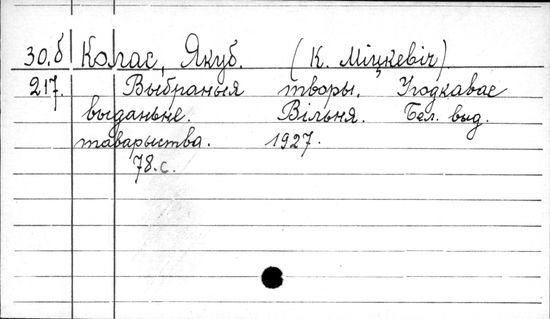 30.б Колас, Якуб. (К. Міцкевіч).
217. Выбраныя творы. Угодкавае
выданьне. Вільня. Бел. выд.
таварыства. 1927.
78. с.